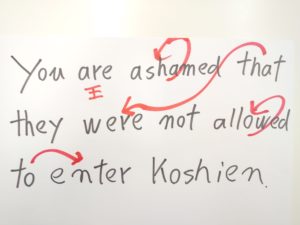 You are ashamed that
王
they were not allowed
to enter Koshien.